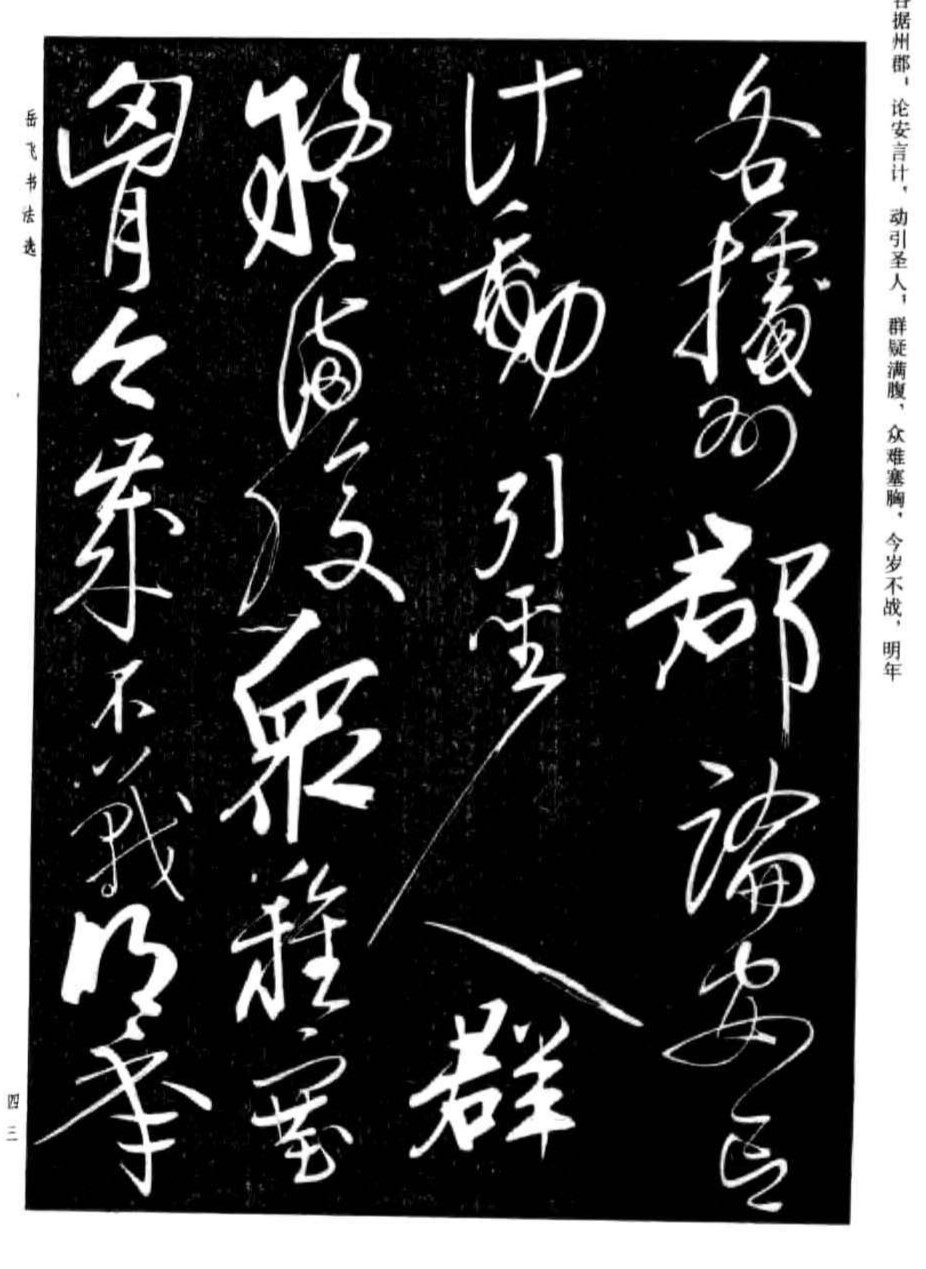 各据州郡，论安言计，动引圣人，群疑满腹，众难塞胸，今岁不战，明年
各據州郡論安言
計動引聖人群
疑滿腹衆難塞
胷今歲不戰明年
岳飞书法选
四三